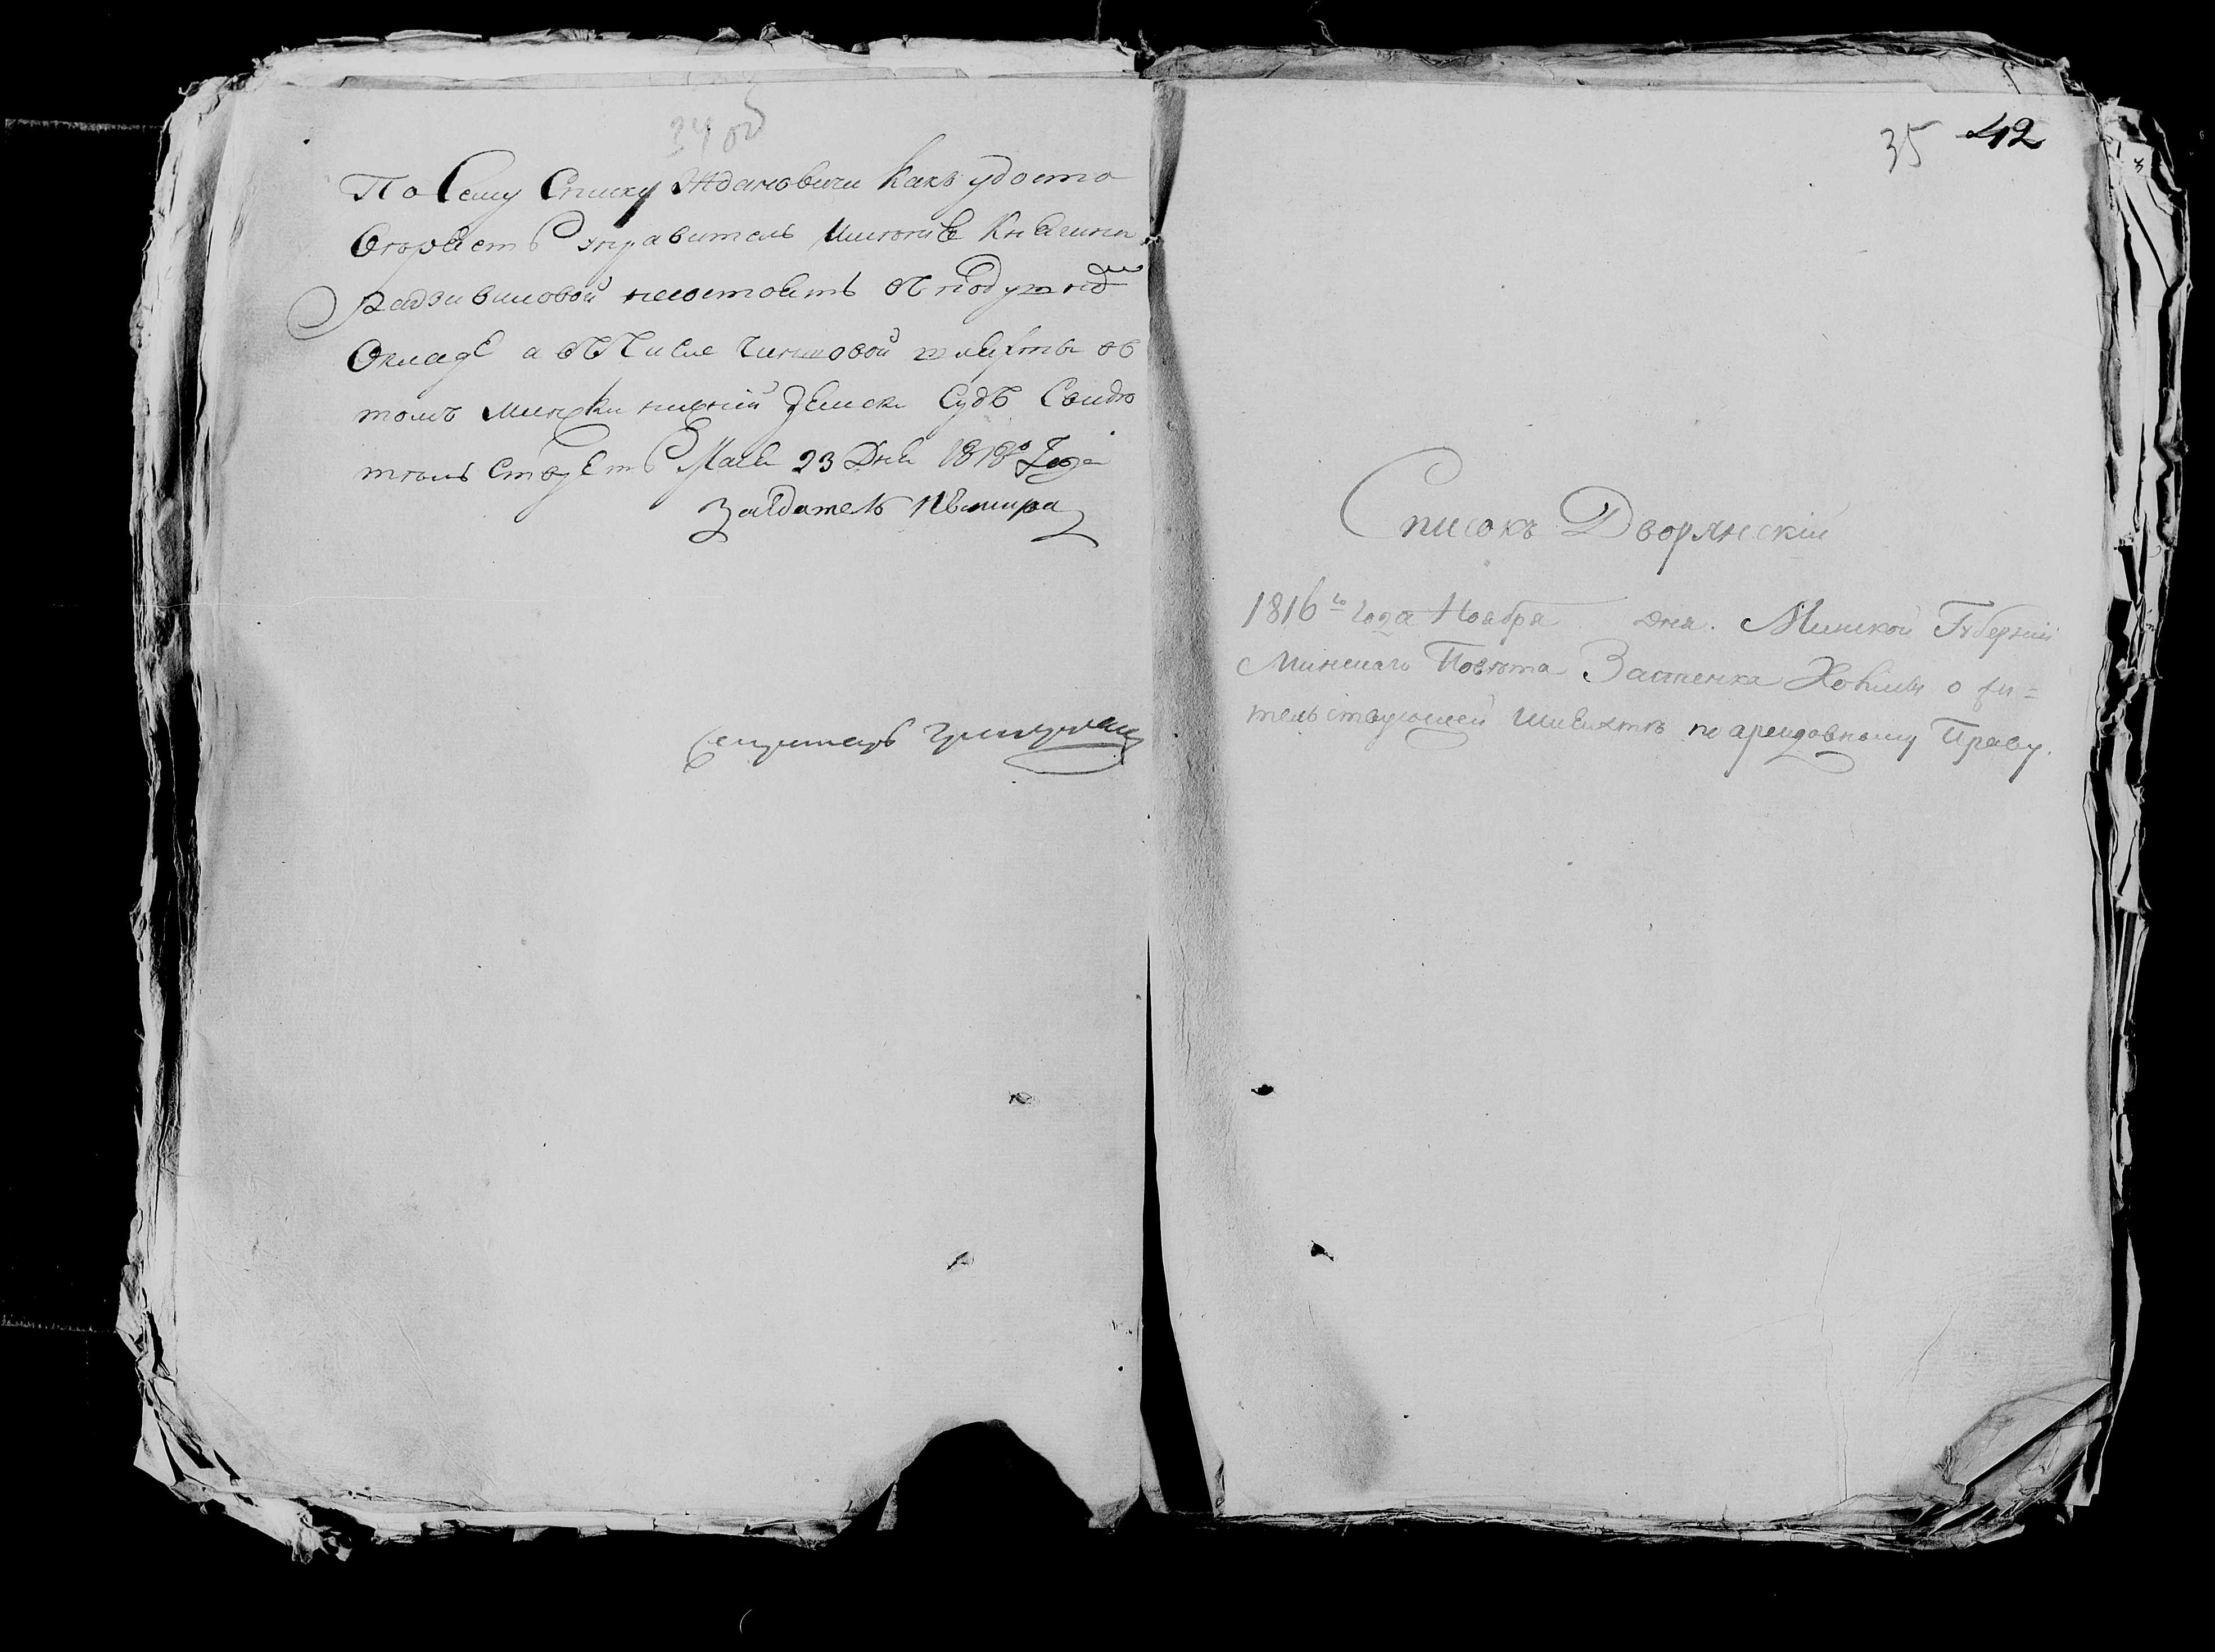 34 об
По Сему Списку Ждановичи какъ удосто
веряетъ управитель имения Княгини
Радзивиловой несостоятъ въ подушном
Окладе а въ Числе Чиншовой шляхты въ
томъ Мински нижний Земски Судъ Свидѣ
тельствуетъ Маия 23 Дня 1818го Года
Заседатель
Секретарь
35 42
Списокъ Дворянскій
1816го года Ноября дня. Минской Губерній
Минскаго Повѣта Застенка о жи=
тельствующей Шляхтѣ по арендовному Праву.